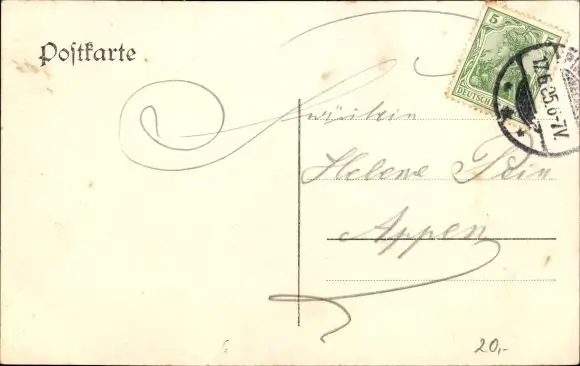 Postkarte
5
DEUTSCHES
17.6.05.6-7V.
Fräulein
Helene Pein
Appen
20,-